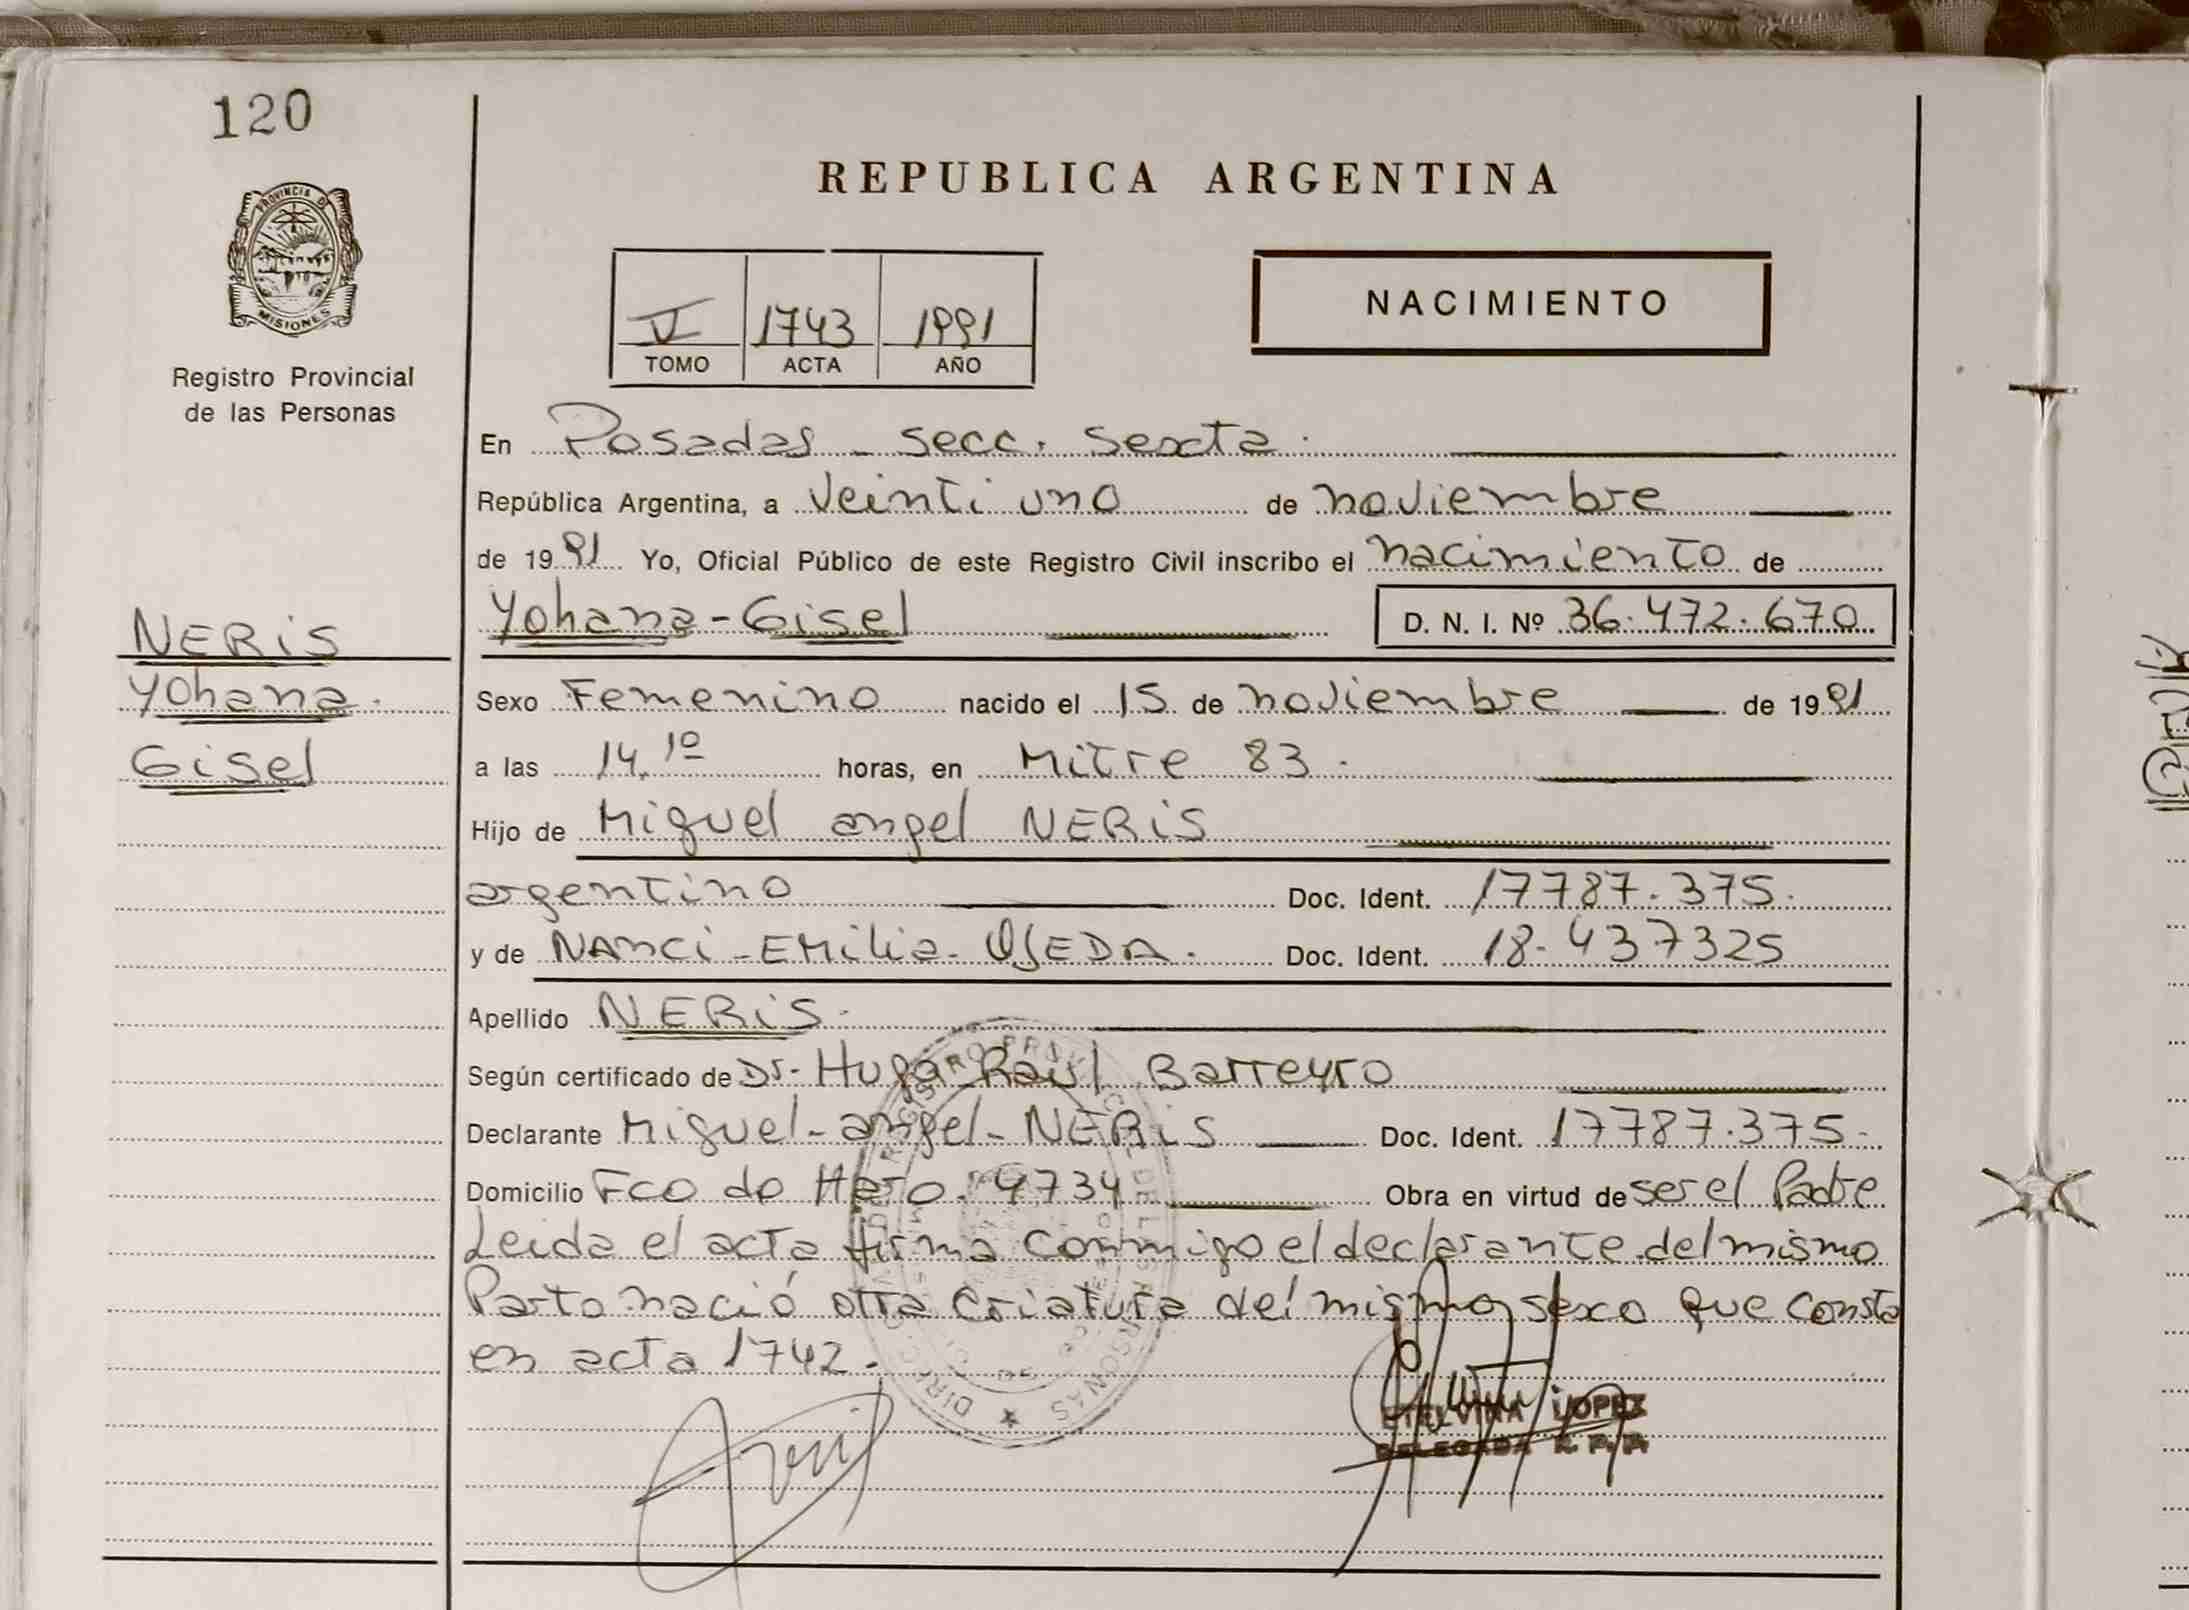 120
PROVINCIA DE
MISIONES
Registro Provincial
de las Personas
REPUBLICA ARGENTINA
V 1743 1991
TOMO ACTA AÑO
NACIMIENTO
En Posadas - secc. sexta.
República Argentina, a veinti uno de noviembre
de 1991 Yo, Oficial Público de este Registro Civil inscribo el nacimiento de
Yohana-Gisel D. N. I. Nº 36.472.670
NERiS
Yohana.
Gisel
Sexo Femenino nacido el 15 de noviembre de 1991
a las 14.10 horas, en Mitre 83.
Hijo de Miguel angel NERiS
argentino Doc. Ident. 17787.375.
y de NANCi-EMilia-OJEDA. Doc. Ident. 18-437325
Apellido NERiS.
Según certificado de Dr. Hugo Raul Barreyro
Declarante Miguel-angel-NERiS Doc. Ident. 17787.375.
Domicilio Fco de Haro. 4734 Obra en virtud de ser el Padre
Leida el acta firma conmigo el declarante.del mismo
Parto nació otra criatura del mismo sexo que consta
en acta 1742.
ETELVINA LOPEZ
DELEGADA R. P. P.